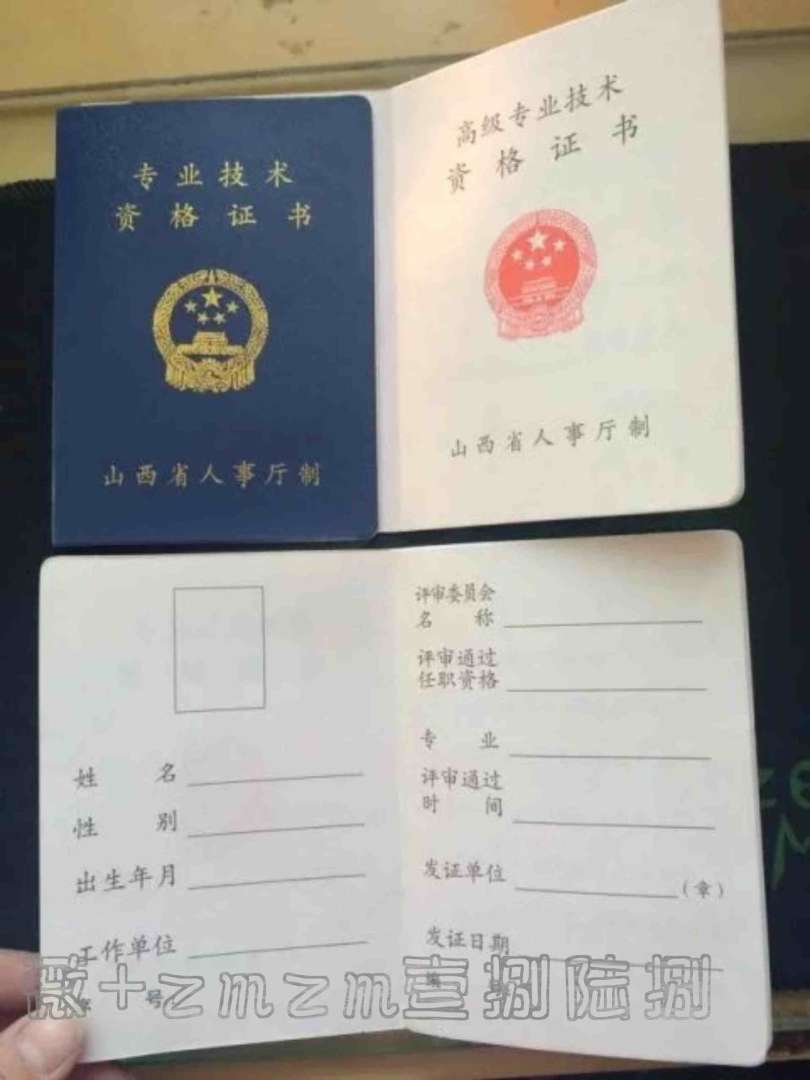 专业技术
资格证书
山西省人事厅制
高级专业技术
资格证书
山西省人事厅制
姓名
性别
出生年月
工作单位
号
评审委员会
名称
评审通过
任职资格
专业
评审通过
时间
发证单位
(章)
发证日期
编
薇+zmzm壹捌陆捌